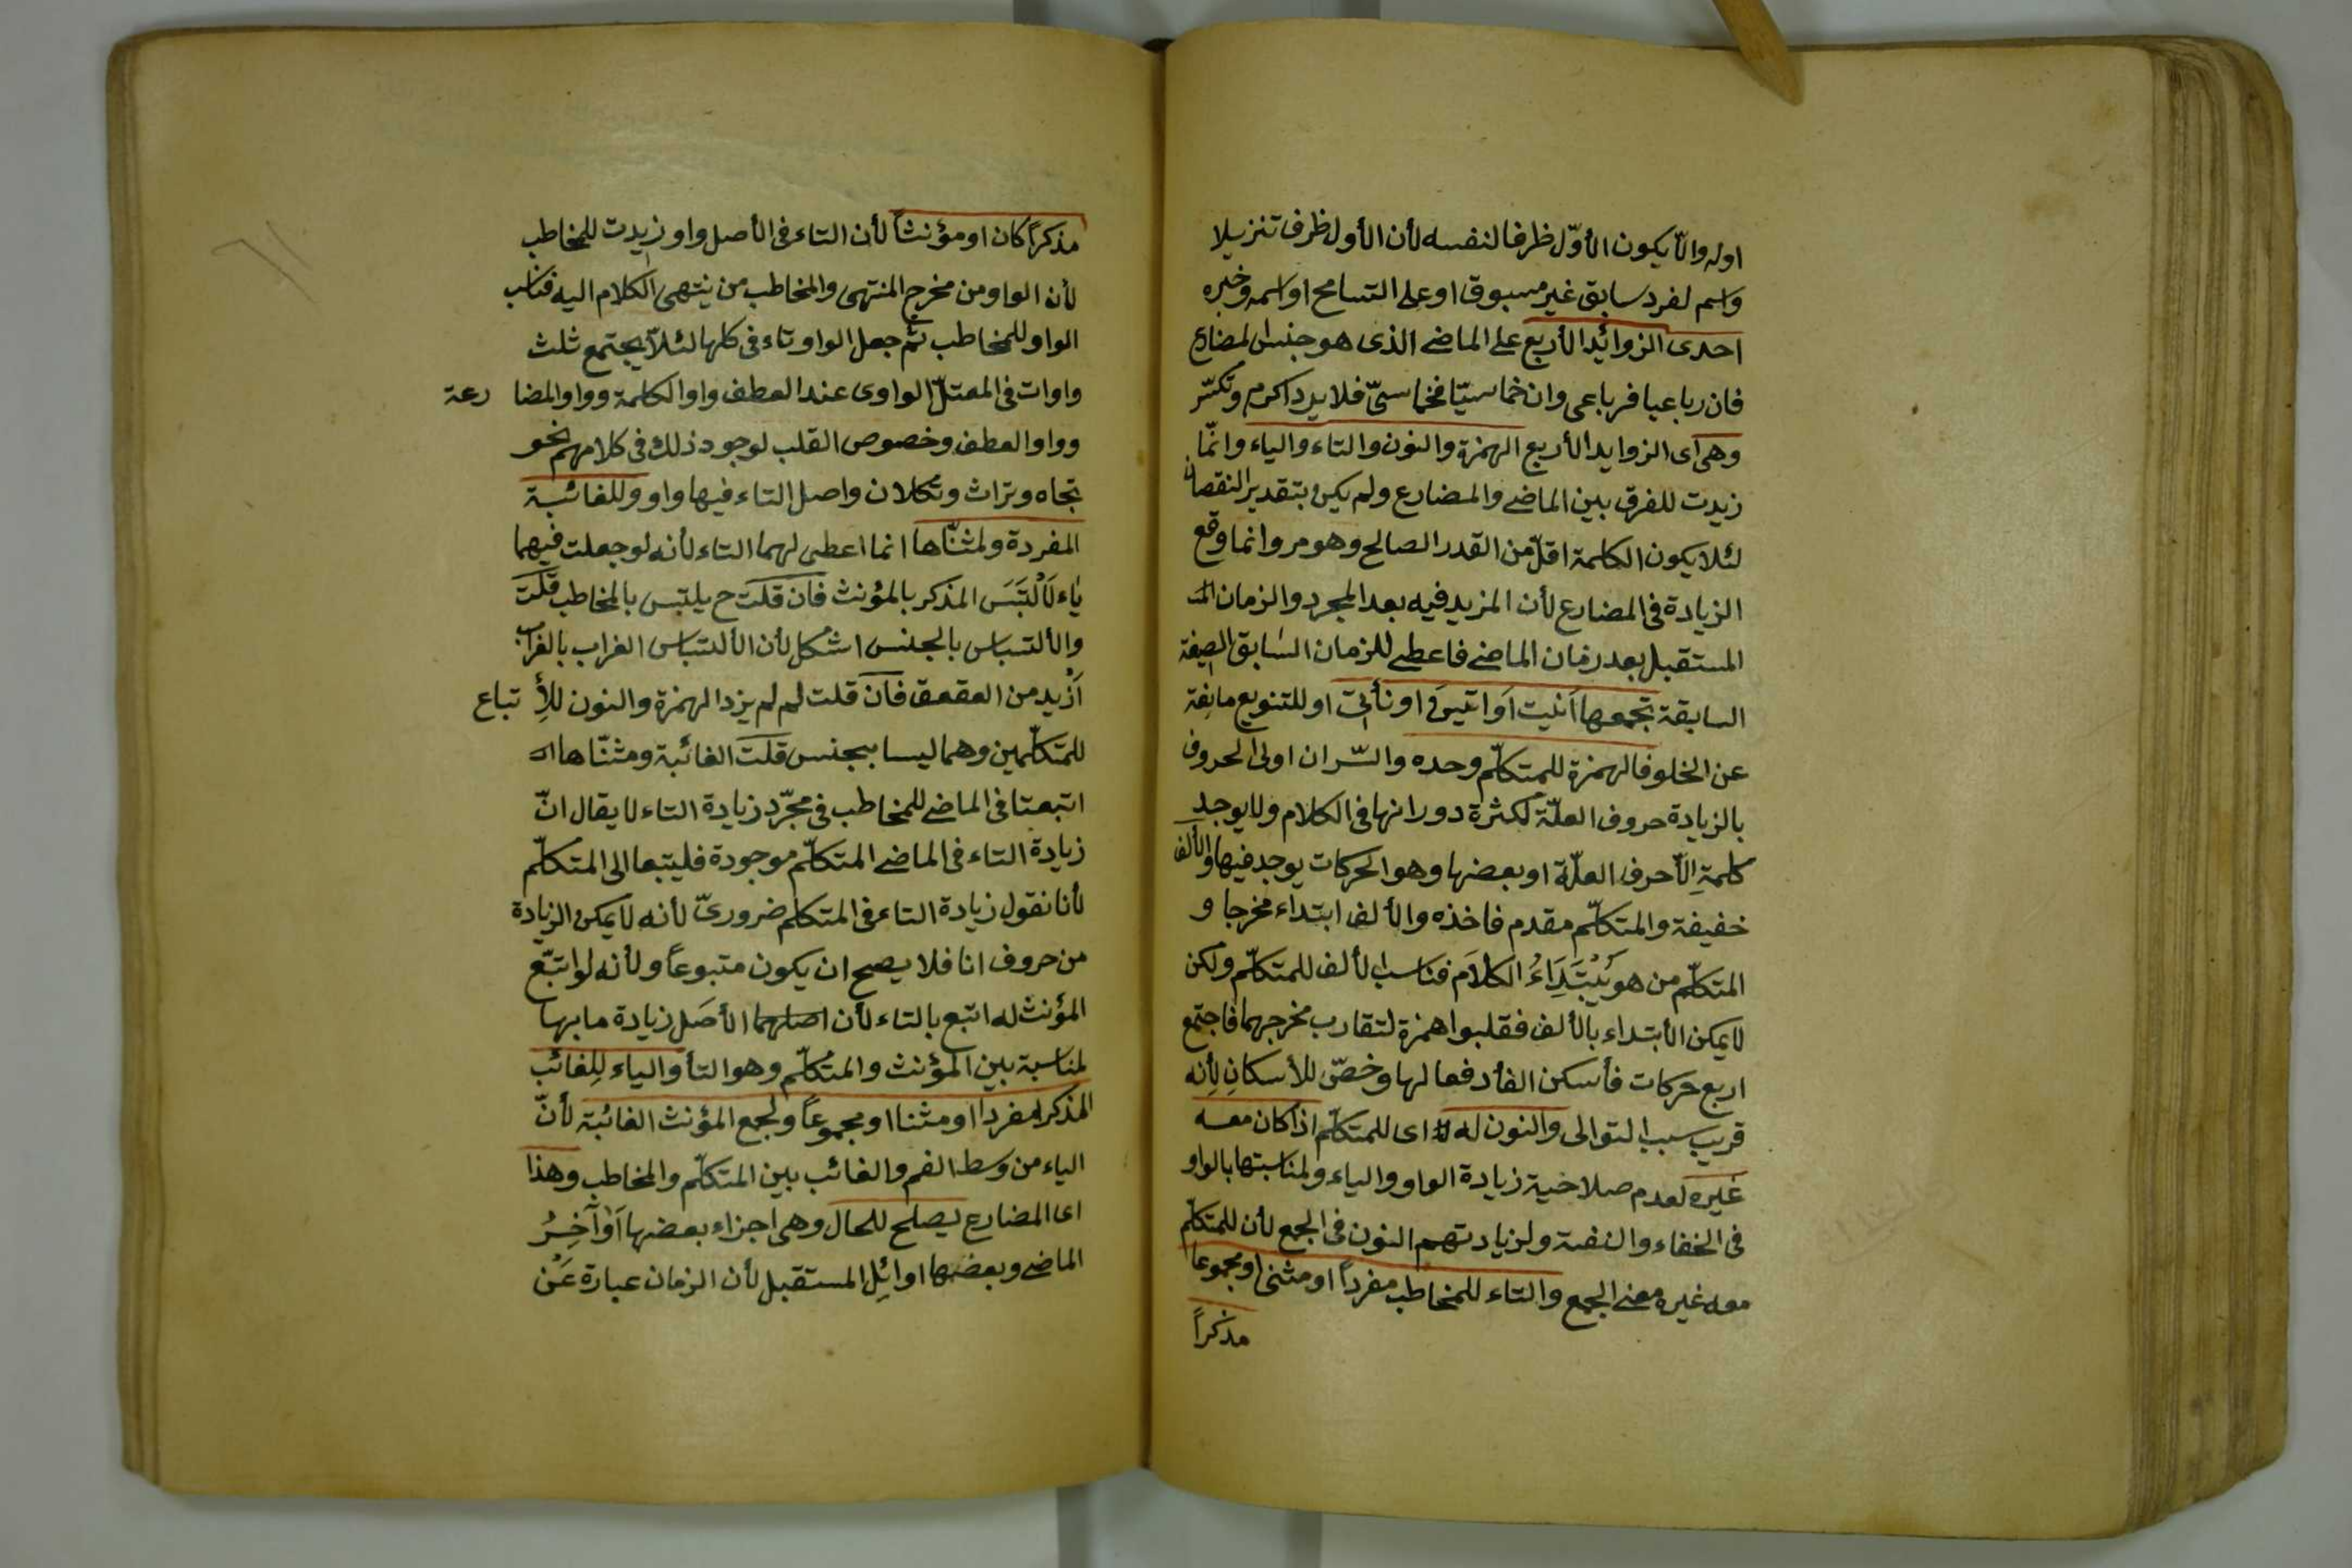 اوله والّا يكون الأوّل ظرفا لنفسه لأن الأول ظرف تنزيلا
واسم لفرد سابق غير مسبوق او على التسامح او اسمه وخبره
احدى الزوائد الأربع على الماضى الذى هو جنس المضارع
فان رباعيا فرباعى وان خماسيّا فخماسىّ فلا يرد اكرم وتكسّر
وهى اى الزوايد الأربع الهمزة والنون والتاء والياء وانّما
زيدت للفرق بين الماضى والمضارع ولم يكن بتقدير النقصان
لئلا يكون الكلمة اقلّ من القدر الصالح وهو مر وانما وقع
الزيادة فى المضارع لأن المزيد فيه بعد المجرد والزمان
المستقبل بعد زمان الماضى فاعطى للزمان السابق الصيغة
السابقة تجمعها انيت او اتين او نأتى او للتنويع مانعة
عن الخلو فالهمزة للمتكلّم وحده والسّر ان اولى الحروف
بالزيادة حروف العلّة لكثرة دورانها فى الكلام ولا يوجد
كلمةِ الّا حرف العلّة او بعضها وهو الحركات يوجد فيها والألف
خفيفة والمتكلّم مقدم فاخذه والألف ابتداء مخرجا و
المتكلّم من هو يَبْتَدِاءُ الكلام فناسب الألف للمتكلّم ولكن
لا يمكن الأبتداء بالألف فقلبوا همزة لتقارب مخرجهما فاجتمع
اربع حركات فأسكن الفأ دفعا لها وخصّ للأسكانِ لأنه
قريب سبب التوالى والنون له اى للمتكلّم اذا كان معه
غيره لعدم صلاحية زيادة الواو والياء ولمناسبتها بالواو
فى الخفاء والغنة ولزيادتهم النون فى الجمع لأن للمتكلّم
معه غيره معنى الجمع والتاء للمخاطب مفرداً او مثنى او مجموعا
مذكراً
مذكراً كان او مؤنثاً لأن التاء فى الأصل واو زيدت للمخاطب
لأن الواو من مخرج المنتهى والمخاطب من ينتهى الكلام اليه فناسب
الواو للمخاطب ثم جعل الواو تاء فى كلها لئلّا يجتمع ثلث
واوات فى المعتلّ الواوى عند العطف واو الكلمة وواو المضارعة
وواو العطف وخصوص القلب لوجود ذلك فى كلامهم نحو
تجاه وتراث وتكلان واصل التاء فيها واو وللغائبة
المفردة ولمثنّاها انما اعطى لهما التاء لأنه لو جعلت فيهما
ياء لَالْتَبَسَ المذكر بالمؤنث فان قلت ح يلتبس بالمخاطب قلت
والألتباس بالجنس اشكل لأن الألتباس الغراب بالغراب
اَزْيد من العقعق فان قلت لم لم يزد الهمزة والنون للأِتباع
للمتكلّمين وهما ليسا بجنس قلت الغائبة ومثنّاها
اتبعتا فى الماضى للمخاطب فى مجّرد زيادة التاء لا يقال انّ
زيادة التاء فى الماضى المتكلّم موجودة فليتبعا الى المتكلّم
لأنا نقول زيادة التاء فى المتكلم ضرورىّ لأنه لا يمكن الزيادة
من حروف انا فلا يصح ان يكون متبوعاً ولأنه لو اتبّع
المؤنث له اتبع بالتاء لأن الأصل زيادة ما بها
لمناسبة بين المؤنث والمتكلّم وهو التأ والياء لِلغائب
المذكر مفردا او مثنا او مجموعاً ولجمع المؤنث الغائبة لأنّ
الياء من وسط الفم والغائب بين المتكلّم والمخاطب وهذا
اى المضارع يصلح للحال وهى اجزاء بعضها اَوآخِرُ
الماضى وبعضها اوائِل المستقبل لأن الزمان عبارة عَنْ